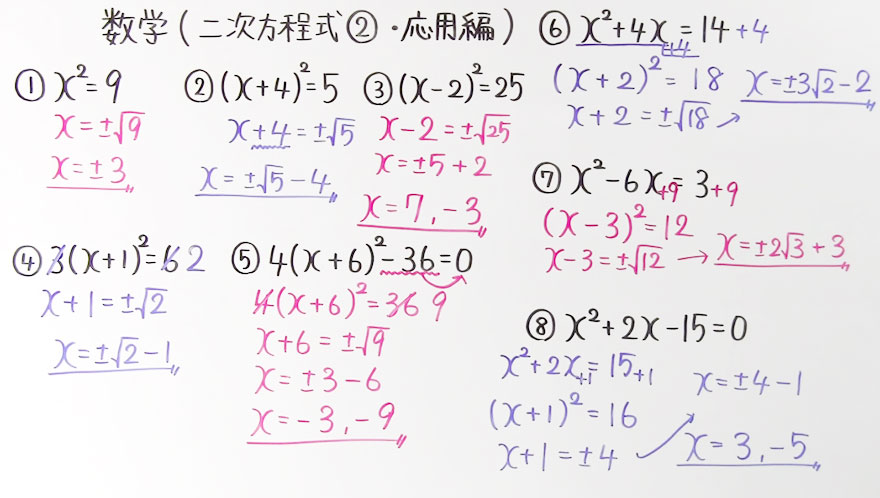 数学(二次方程式②・応用編)
① x²=9
x=±√9
x=±3
② (x+4)²=5
x+4=±√5
x=±√5-4
③ (x-2)²=25
x-2=±√25
x=±5+2
x=7,-3
④ 3(x+1)²=6 2
x+1=±√2
x=±√2-1
⑤ 4(x+6)²-36=0
4(x+6)²=36 9
x+6=±√9
x=±3-6
x=-3,-9
⑥ x²+4x+4=14+4
(x+2)²=18
x+2=±√18
x=±3√2-2
⑦ x²-6x+9=3+9
(x-3)²=12
x-3=±√12 → x=±2√3+3
⑧ x²+2x-15=0
x²+2x+1=15+1
(x+1)²=16
x+1=±4
x=±4-1
x=3,-5